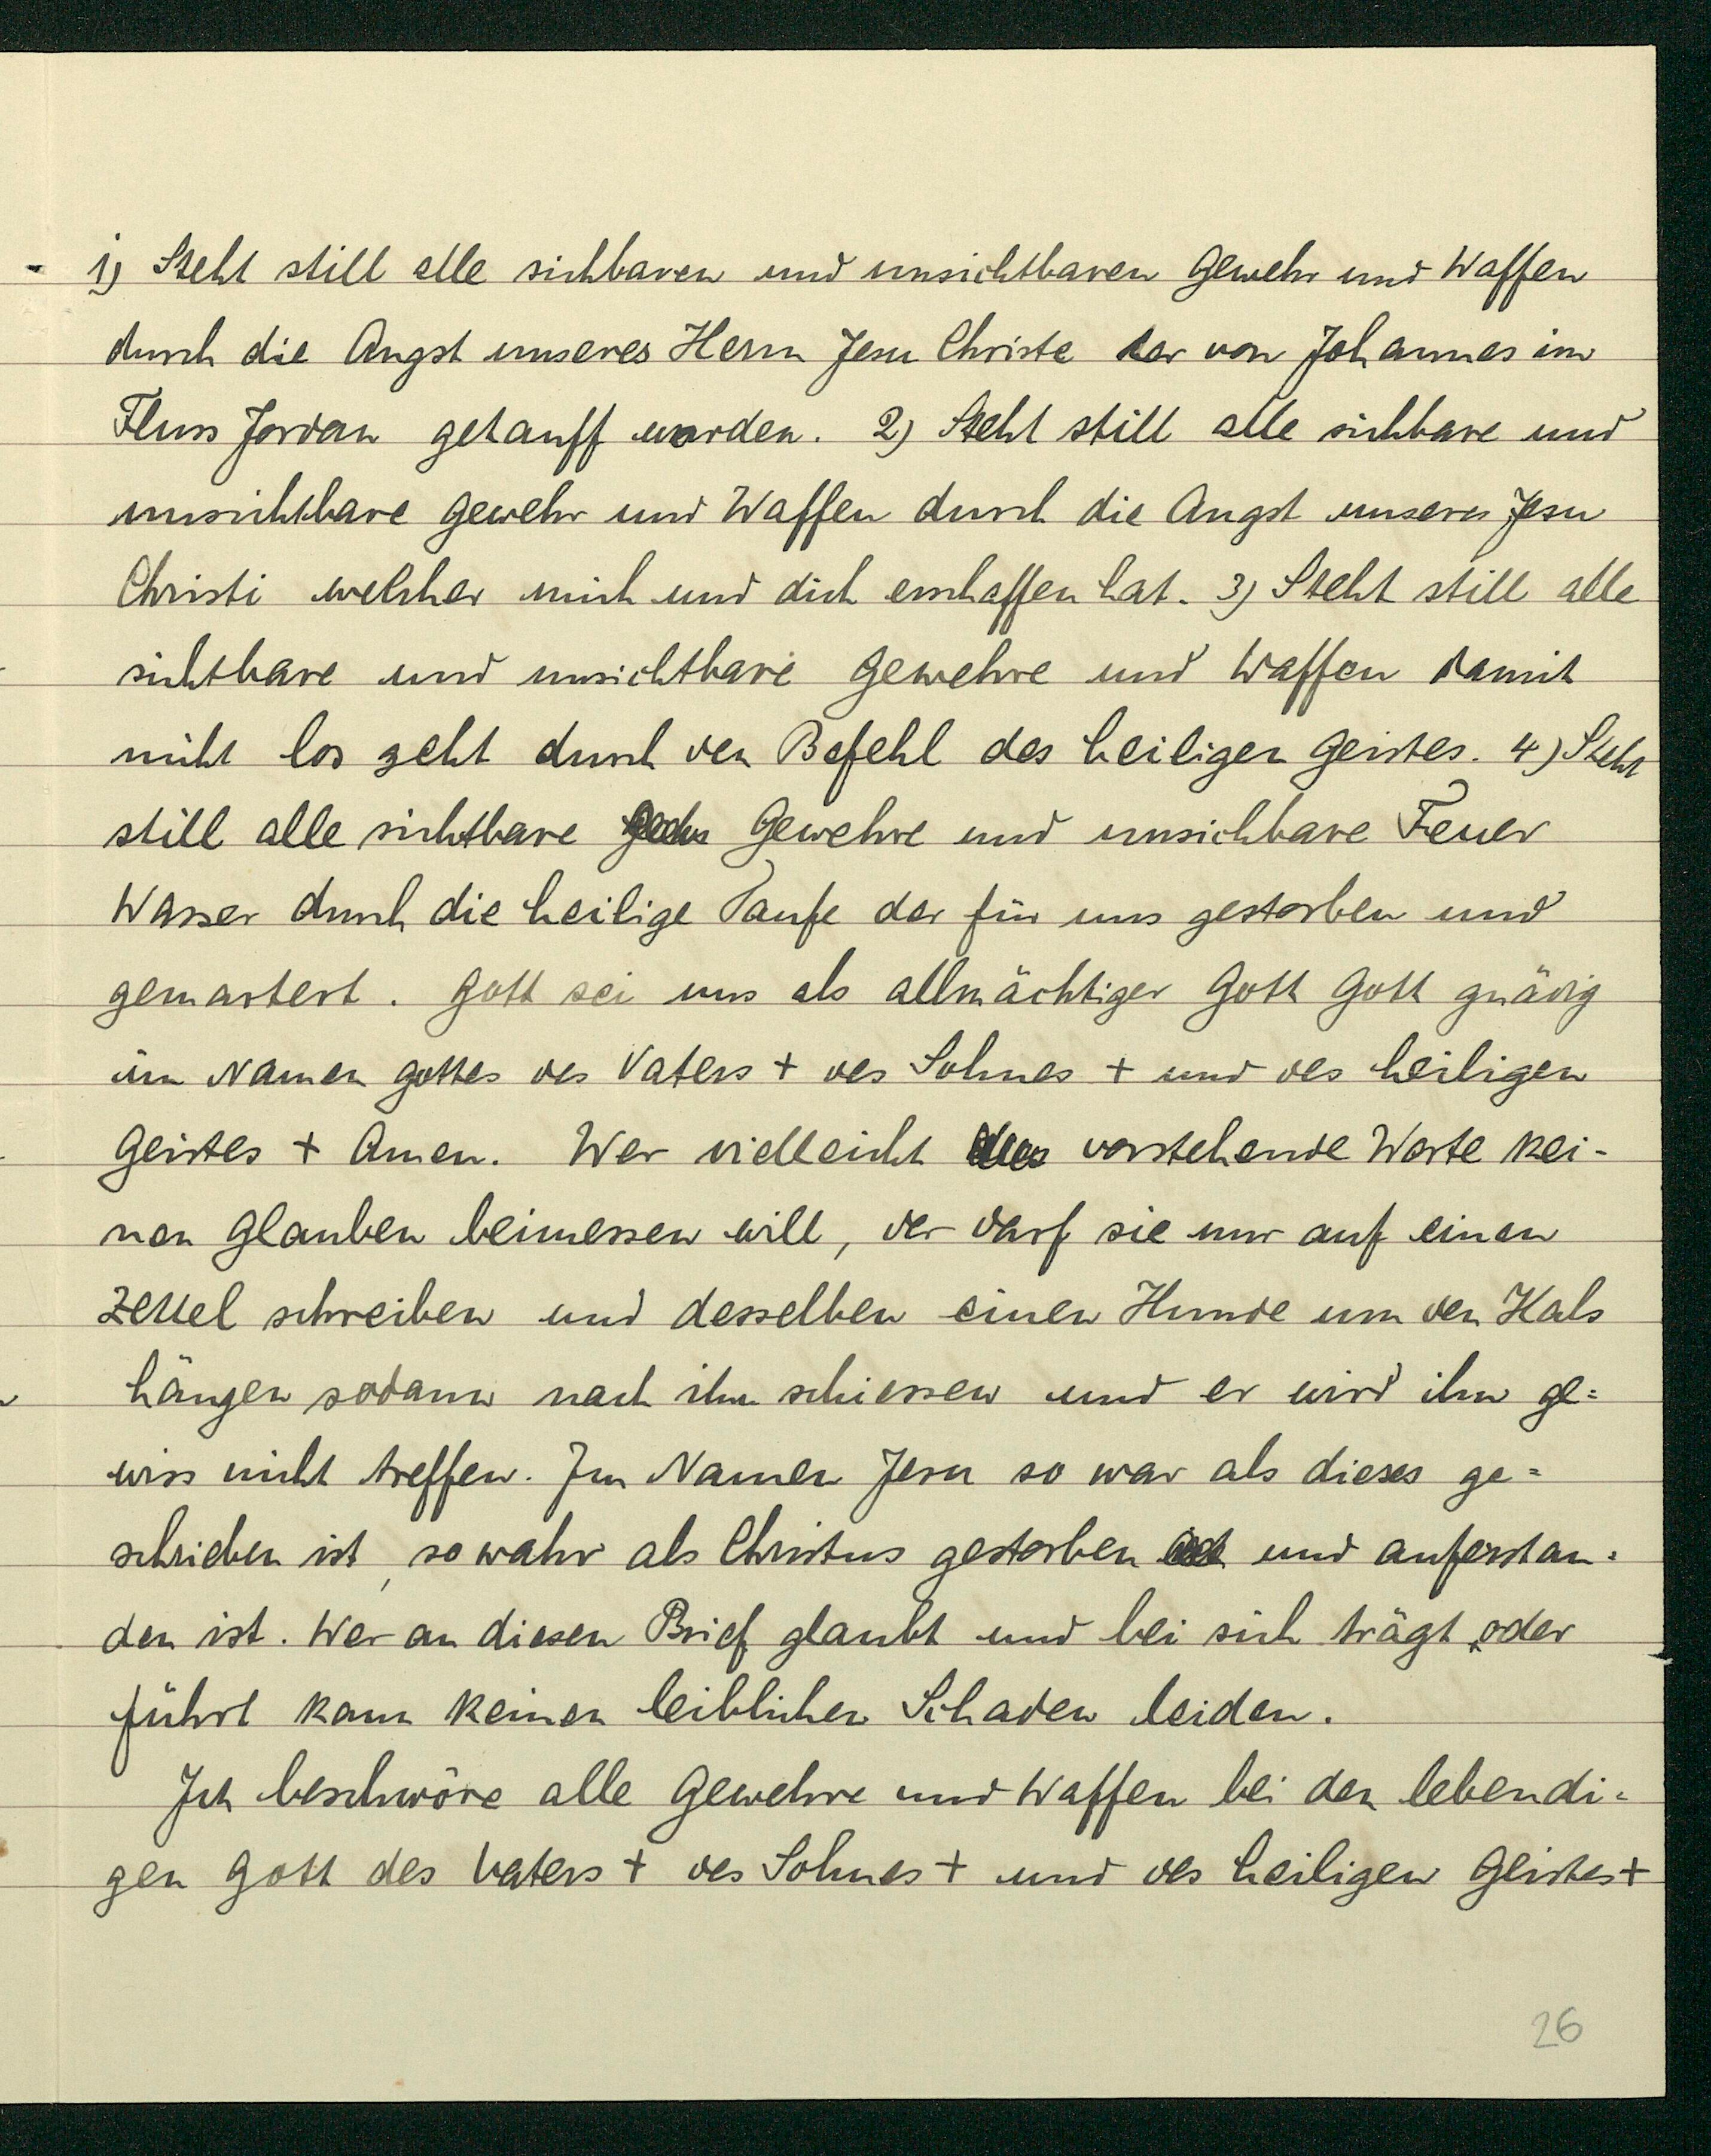 1) Steht still alle sichbaren und unsichtbaren Gewehr und Waffen
durch die Angst unseres Herrn Jesu Christe der von Johannes im
Fluss Jordan getauff worden. 2) Steht still alle sichbare und
unsichtbare Gewehr und Waffen durch die Angst unseres Jesu
Christi welcher mich und dich erschaffen hat. 3) Steht still alle
sichtbare und unsichtbare Gewehre und Waffen damit
nicht los geht durch den Befehl des heiligen Geistes. 4) Steht
still alle sichtbare Gewehre und unsichbare Feuer
Wasser durch die heilige Taufe der für uns gestorben und
gemartert. Gott sei uns als allmächtiger Gott Gott gnädig
im Namen Gottes des Vaters + des Sohnes + und des heiligen
Geistes + Amen. Wer vielleicht vorstehende Worte kei-
nen Glauben beimessen will, der darf sie nur auf einen
Zettel schreiben und desselben einen Hunde um den Hals
hängen sodann nach ihm schiessen und er wird ihn ge=
wiss nicht treffen. Im Namen Jesu so war als dieses ge=
schrieben ist, so wahr als Christus gestorben und auferstan=
den ist. Wer an diesen Brief glaubt und bei sich trägt, oder
führt kann keinen leiblichen Schaden leiden.
Ich beschwöre alle Gewehre und Waffen bei den lebendi=
gen Gott des Vaters + des Sohnes + und des heiligen Geistes +
26